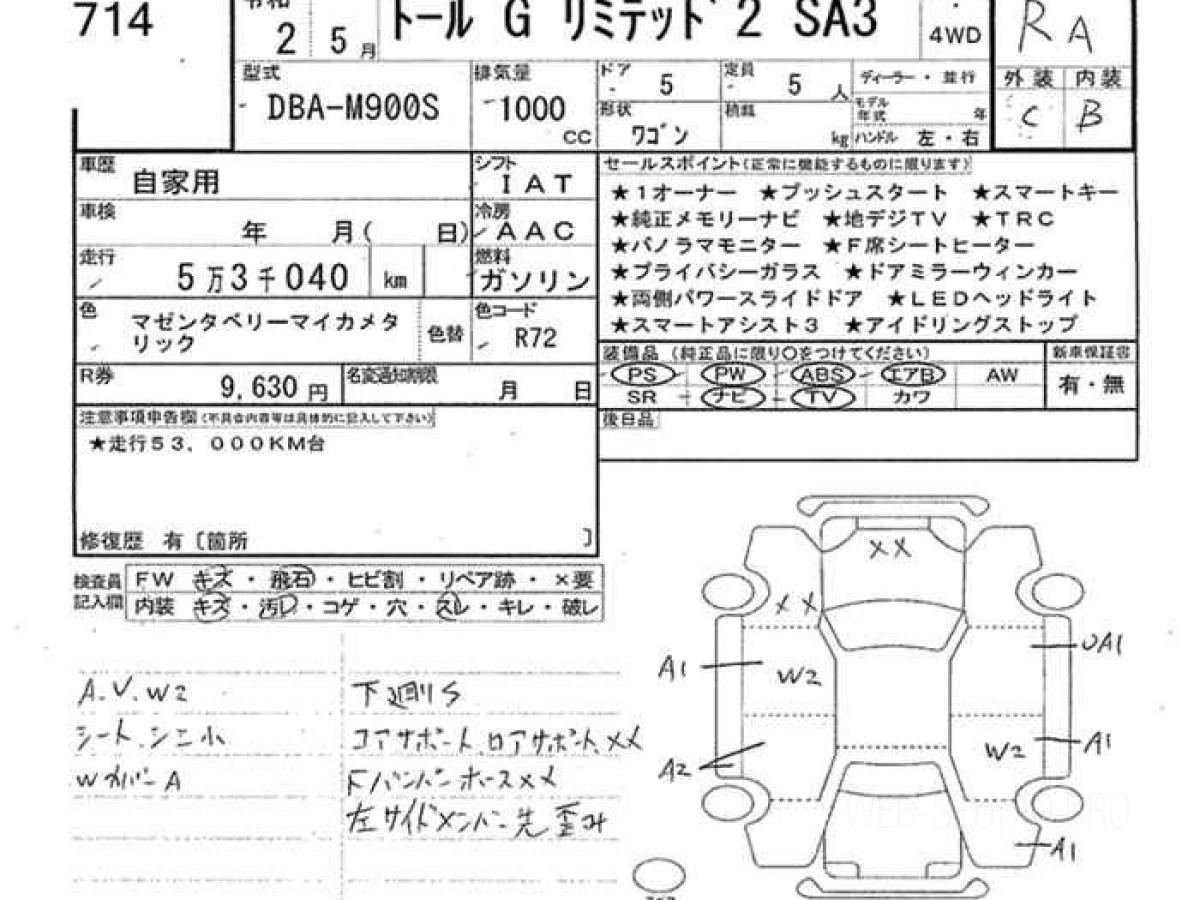 714
令和
2 5月
トール G リミテッド2 SA3
4WD
RA
型式
DBA-M900S
排気量
1000
CC
ドア
5
定員
5
人
ディーラー・並行
形状
ワゴン
積載
kg
モデル
年式
年
ハンドル 左・右
外装 内装
C B
車歴
自家用
シフト
IAT
車検
年 月( 日)
冷房
AAC
走行
5万3千040 km
燃料
ガソリン
色
マゼンタベリーマイカメタ
リック
色替
色コード
R72
R券
9,630円
名変通知期限
月 日
セールスポイント(正常に機能するものに限ります)
★1オーナー ★プッシュスタート ★スマートキー
★純正メモリーナビ ★地デジTV ★TRC
★パノラマモニター ★F席シートヒーター
★プライバシーガラス ★ドアミラーウィンカー
★両側パワースライドドア ★LEDヘッドライト
★スマートアシスト3 ★アイドリングストップ
装備品 (純正品に限り○をつけてください)
新車保証書
PS PW ABS エアB AW
SR ナビ TV カワ
有・無
後日品
注意事項申告欄(不具合内容等は具体的に記入して下さい)
★走行53,000KM台
修復歴 有〔箇所 〕
検査員
記入欄
FW キズ・飛石・ヒビ割・リペア跡・×要
内装 キズ・汚レ・コゲ・穴・スレ・キレ・破レ
A.V.W2
シート、シミ小
WカバーA
下廻りS
コアサポート、ロアサポート、XX
FバンパーホースXX
左サイドメンバー先歪み
XX
XX
A1
W2
A2
UA1
W2
A1
A1
WEB-STUDIO.PRO